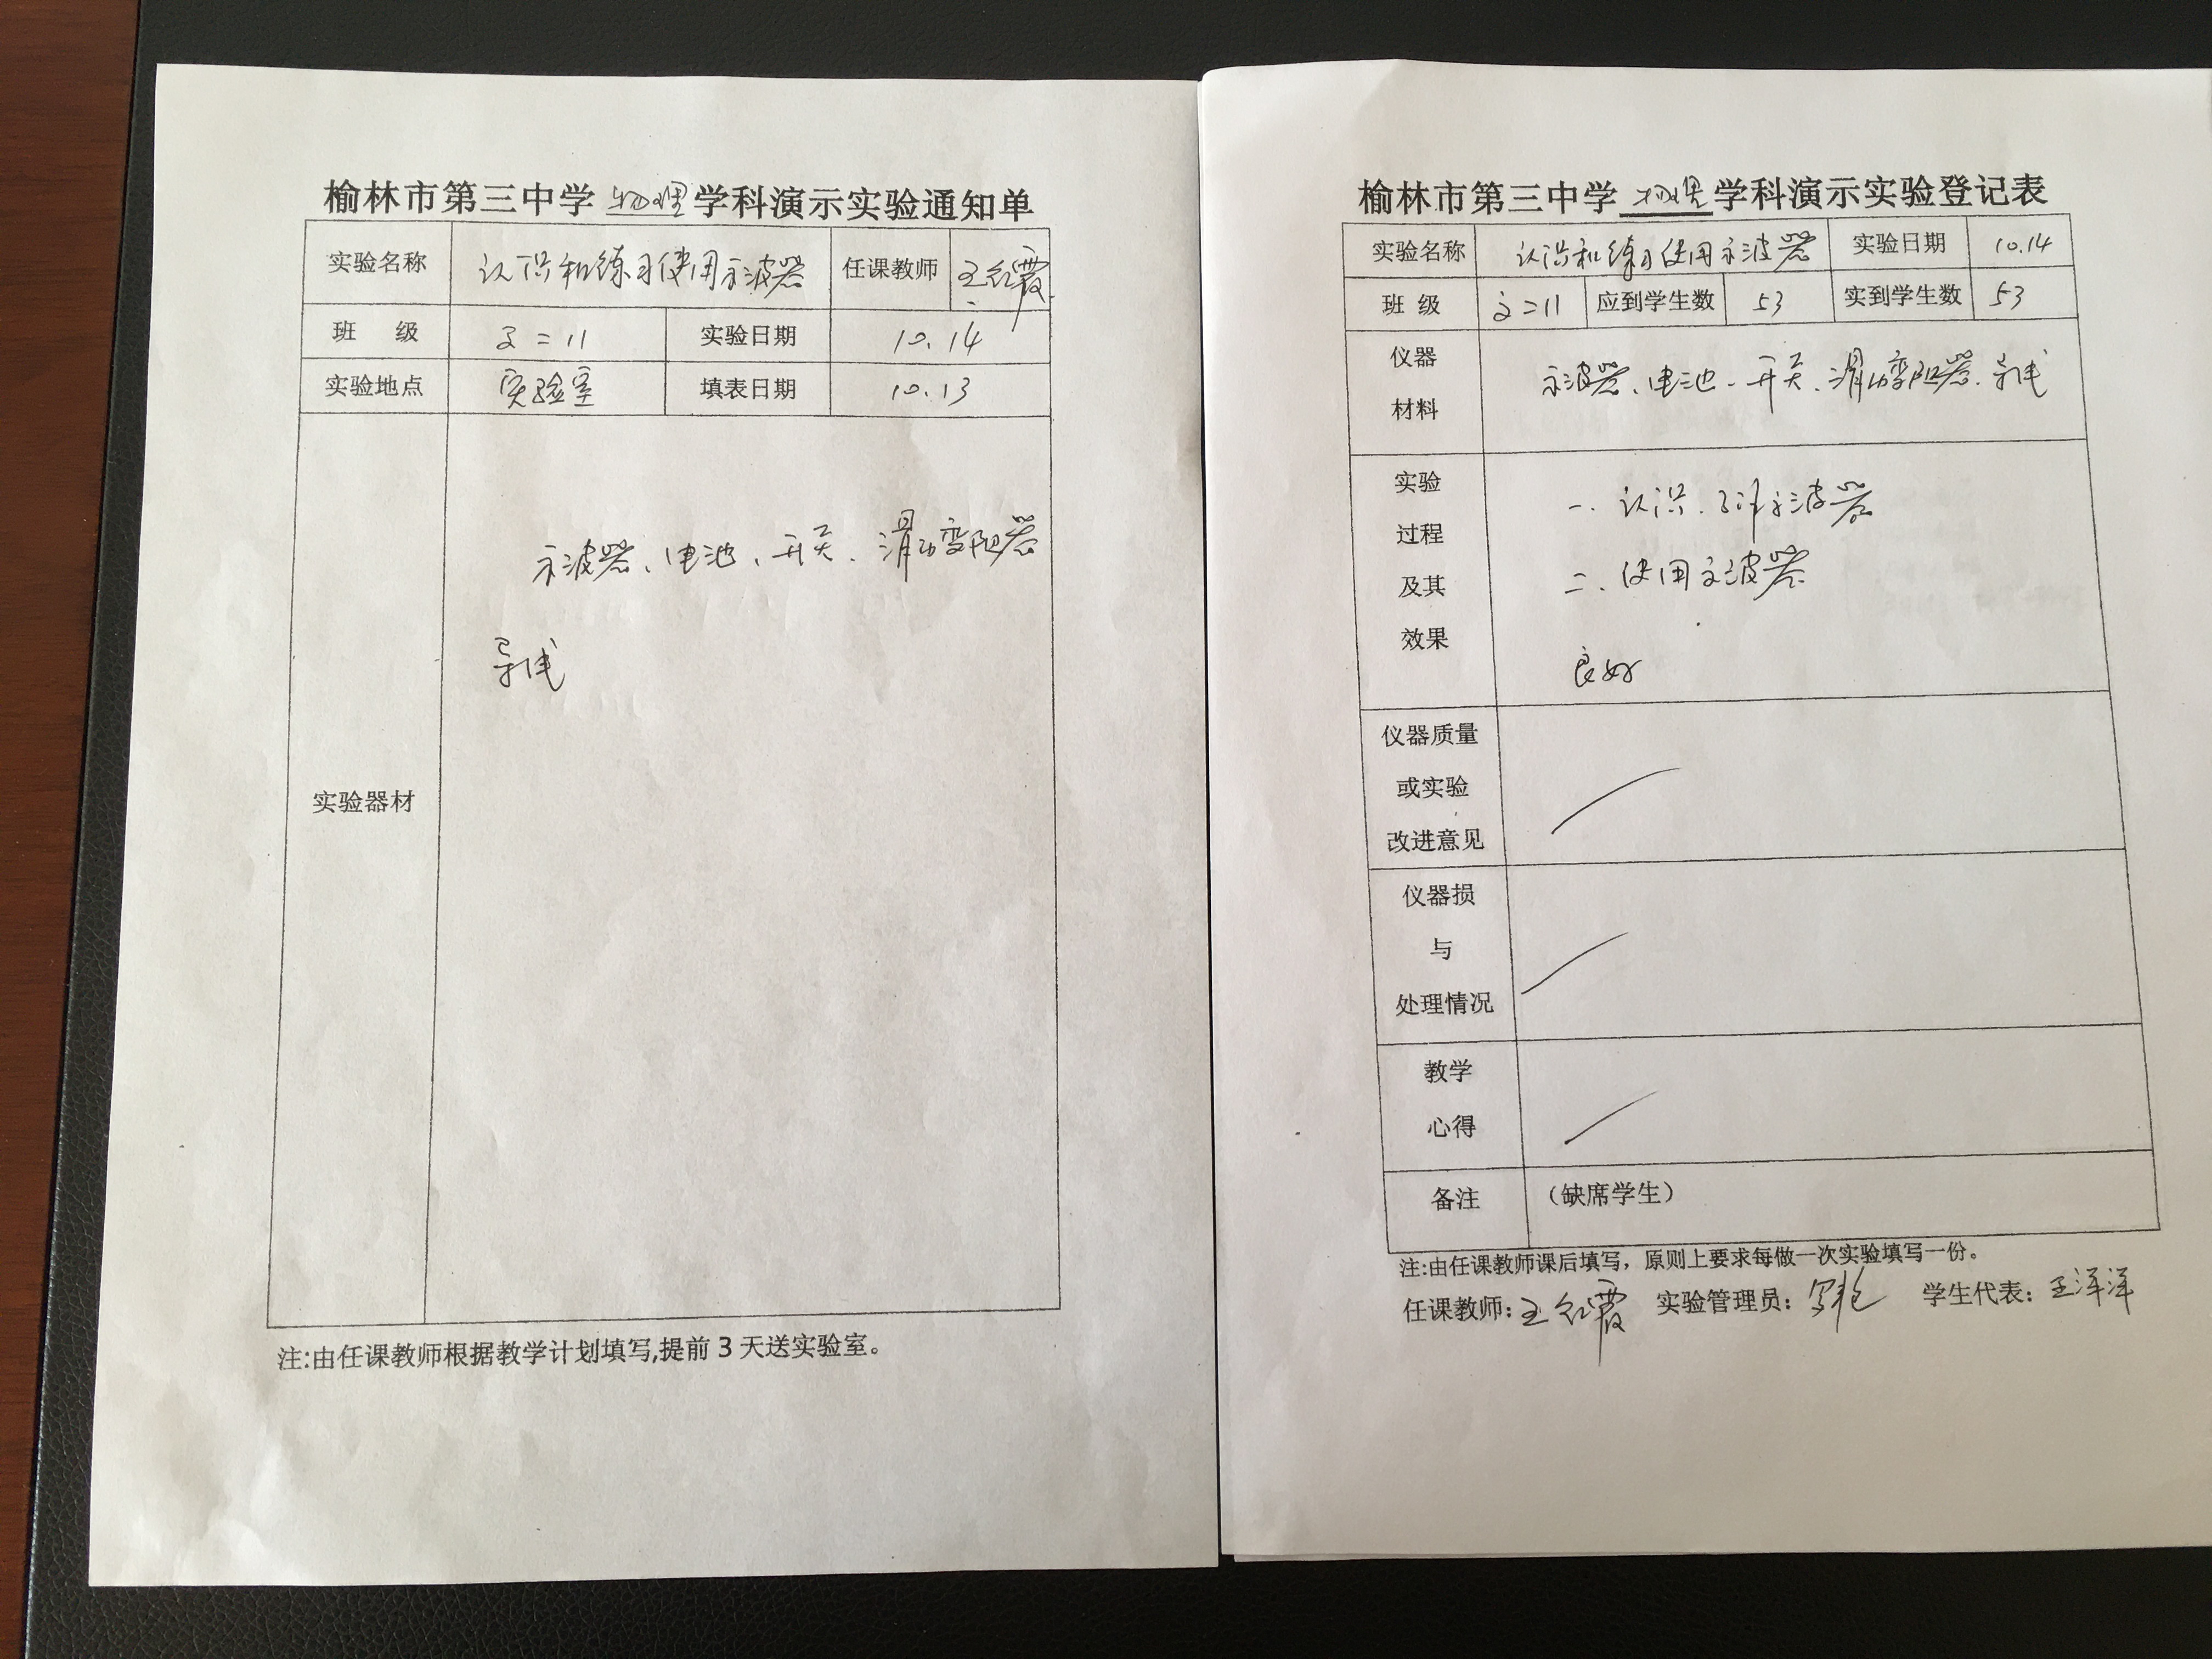 榆林市第三中学 物理 学科演示实验通知单
实验名称 认识和练习使用示波器 任课教师 王红霞
班 级 高二11 实验日期 10.14
实验地点 实验室 填表日期 10.13
实验器材
示波器、电池、开关、滑动变阻器
导线
注:由任课教师根据教学计划填写,提前3天送实验室。
榆林市第三中学 物理 学科演示实验登记表
实验名称 认识和练习使用示波器 实验日期 10.14
班 级 高二11 应到学生数 53 实到学生数 53
仪器
材料
示波器、电池、开关、滑动变阻器、导线
实验
过程
及其
效果
一、认识、了解示波器
二、使用示波器
良好
仪器质量
或实验
改进意见
仪器损
与
处理情况
教学
心得
备注 （缺席学生）
注:由任课教师课后填写，原则上要求每做一次实验填写一份。
任课教师: 王红霞 实验管理员: 学生代表: 王洋洋